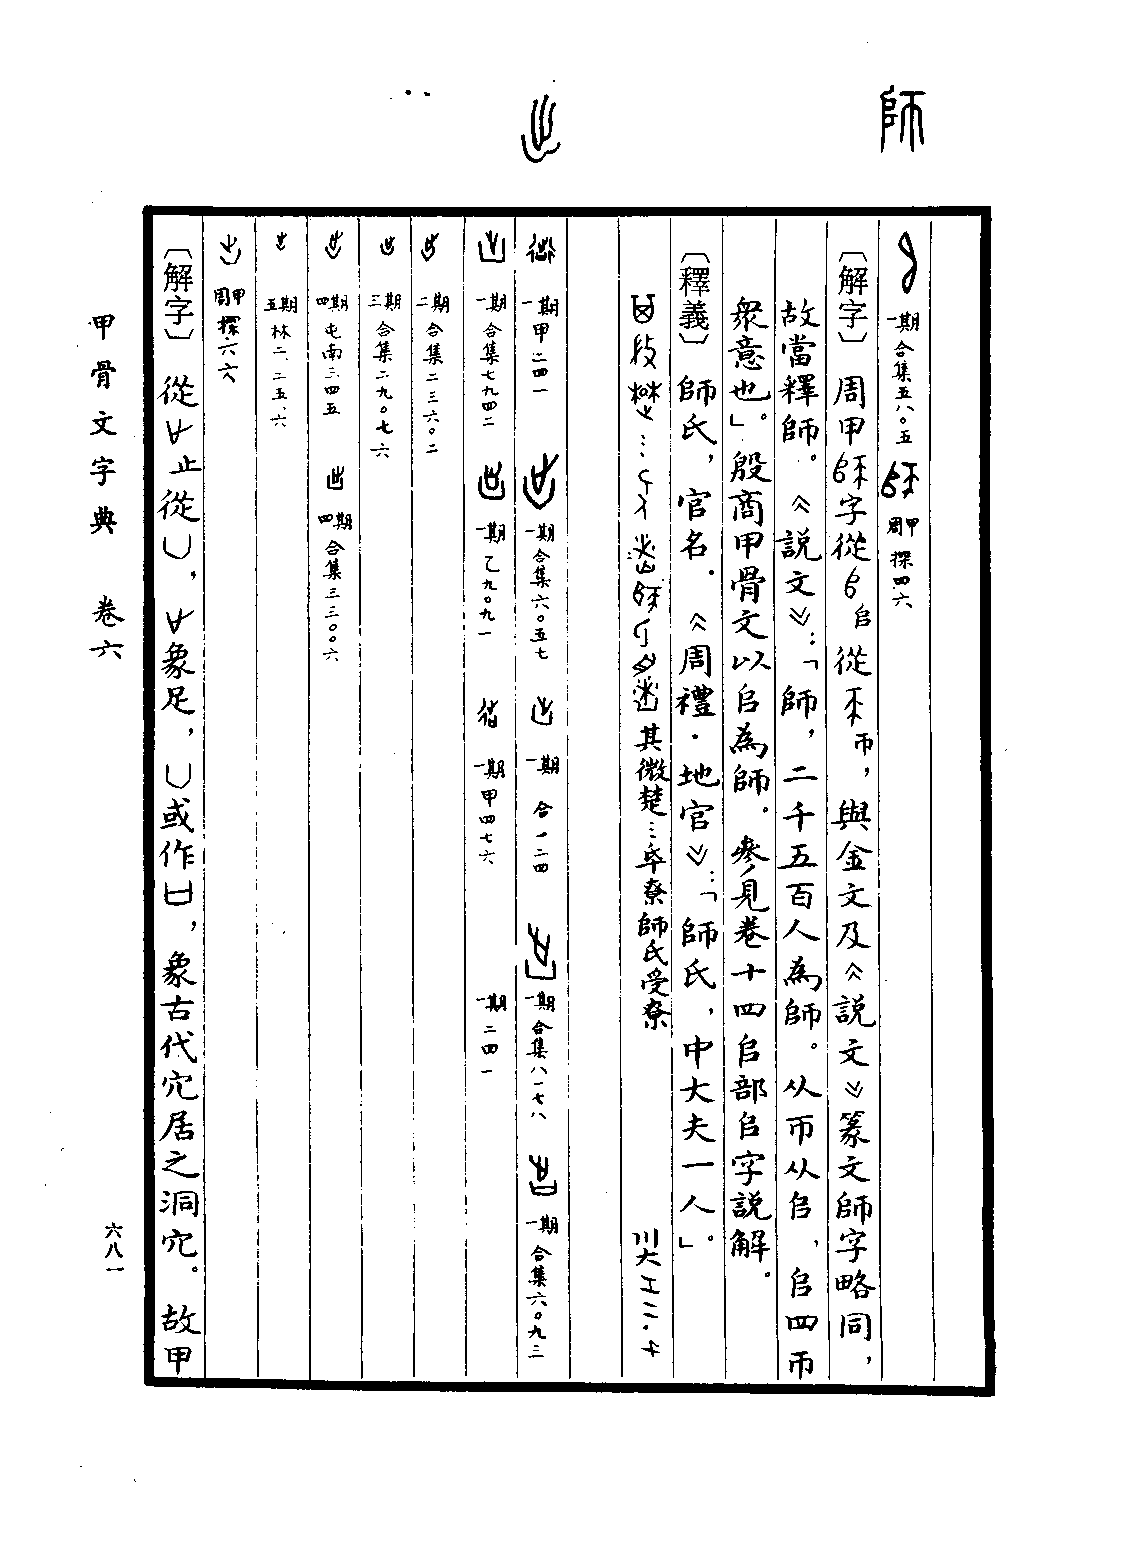 師
一期 合集五八〇五 周甲探四六
〔解字〕周甲字從𠂤從帀，與金文及《說文》篆文師字略同，
故當釋師。《說文》：「師，二千五百人為師。从帀从𠂤，𠂤四帀
眾意也」。殷商甲骨文以𠂤為師。參見卷十四𠂤部𠂤字說解。
〔釋義〕師氏，官名。《周禮·地官》：「師氏，中大夫一人。」
其微楚…氒寮師氏受寮
一期 甲二四一 一期 合集六〇五七 一期 合一二四 一期 合集八一七八 一期 合集六〇九三
一期 合集七九四二 一期 乙九〇九一 一期 甲四七六 一期 二四一
二期 合集二三六〇二
三期 合集二九〇七六
四期 屯南三四五 四期 合集三三〇〇六
五期 林二、二五、六
周甲 探六六
〔解字〕從止從凵，象足，凵或作，象古代穴居之洞穴。故甲
甲骨文字典 卷六
六八一